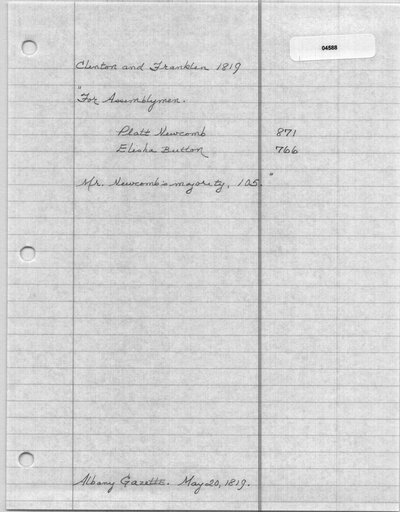 04588
Clinton and Franklin 1819
"For Assemblymen.
Platt Newcomb 871
Elisha Button 766
Mr. Newcomb's majority, 105."
Albany Gazette. May 20, 1819.